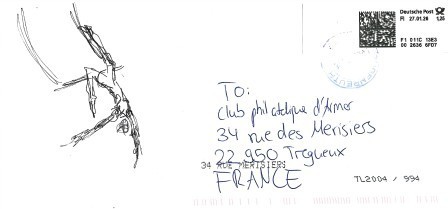 Deutsche Post
FI 27.01.26 1,25
F1 011C 13E3
00 2636 6FD7
TO:
Club philatelique d'Armor
34 rue des Merisiers
22 950 Tregueux
34 RUE MERISIERS
FRANCE
TL2004 / 994